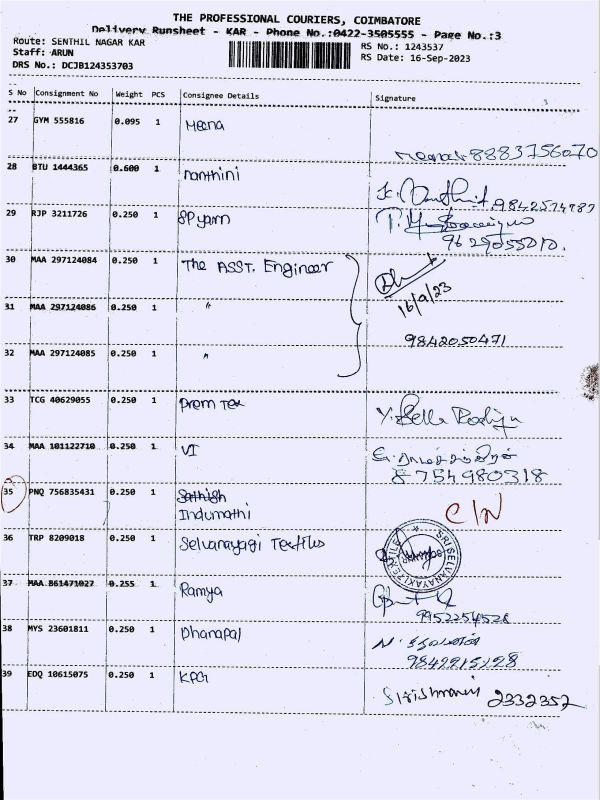 THE PROFESSIONAL COURIERS, COIMBATORE
Delivery Runsheet - KAR - Phone No.:0422-3505555 - Page No.:3
Route: SENTHIL NAGAR KAR RS No.: 1243537
Staff: ARUN RS Date: 16-Sep-2023
DRS No.: DCJB124353703
S No Consignment No Weight PCS Consignee Details Signature
27 GYM 555816 0.095 1 Meena
8883756070
28 BTU 1444365 0.600 1 nanthini
9842574787
29 RJP 3211726 0.250 1 SP yarn
9629055010.
30 MAA 297124084 0.250 1 The ASST. Engineer
16/9/23
31 MAA 297124086 0.250 1 "
9842050471
32 MAA 297124085 0.250 1 "
33 TCG 40629055 0.250 1 Prem Tex
34 MAA 101122710 0.250 1 VI
8754980318
35 PNQ 756835431 0.250 1 Sathish
Indumathi C/N
36 TRP 8209018 0.250 1 Selvanayagi Textiles
SRI SELVANAYAKI TEXTILE
37 MAA 861471027 0.255 1 Ramya
9952254528
38 MYS 23601811 0.250 1 Dhanapal
9842215128
39 EDQ 10615075 0.250 1 KPG
2332357